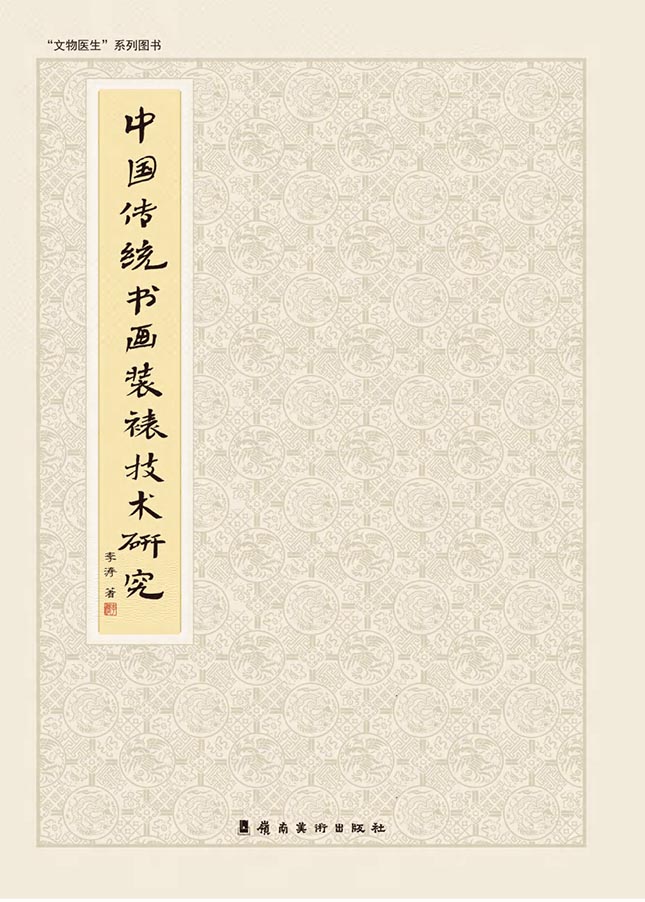 “文物医生”系列图书
中国传统书画装裱技术研究
李涛 著
嶺南美術出版社